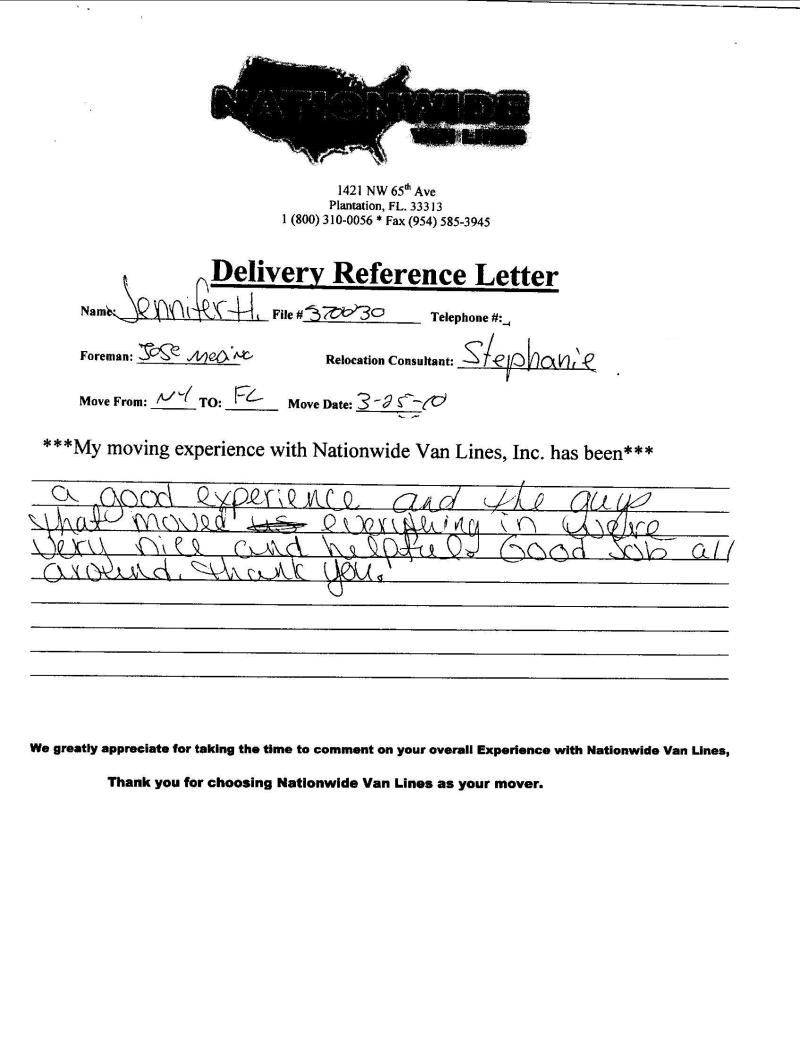 NATIONWIDE
VAN LINES
1421 NW 65th Ave
Plantation, FL. 33313
1 (800) 310-0056 * Fax (954) 585-3945
Delivery Reference Letter
Name: Jennifer H. File # 370030 Telephone #:
Foreman: Jose Medina Relocation Consultant: Stephanie
Move From: NY TO: FL Move Date: 3-25-10
***My moving experience with Nationwide Van Lines, Inc. has been***
a good experience and the guys
that moved us everything in were
very nice and helpful. Good Job all
around. Thank you!
We greatly appreciate for taking the time to comment on your overall Experience with Nationwide Van Lines,
Thank you for choosing Nationwide Van Lines as your mover.